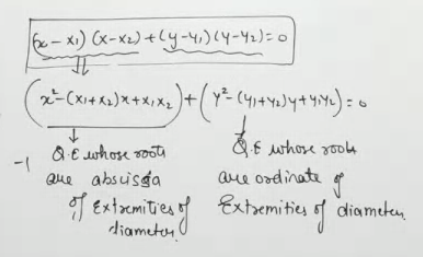 (x - x₁) (x - x₂) + (y - y₁) (y - y₂) = 0
(x² - (x₁ + x₂)x + x₁x₂) + (y² - (y₁ + y₂)y + y₁y₂) = 0
-1 Q.E whose roots are abscissa of Extremities of diameter
Q.E whose roots are ordinate of Extremities of diameter